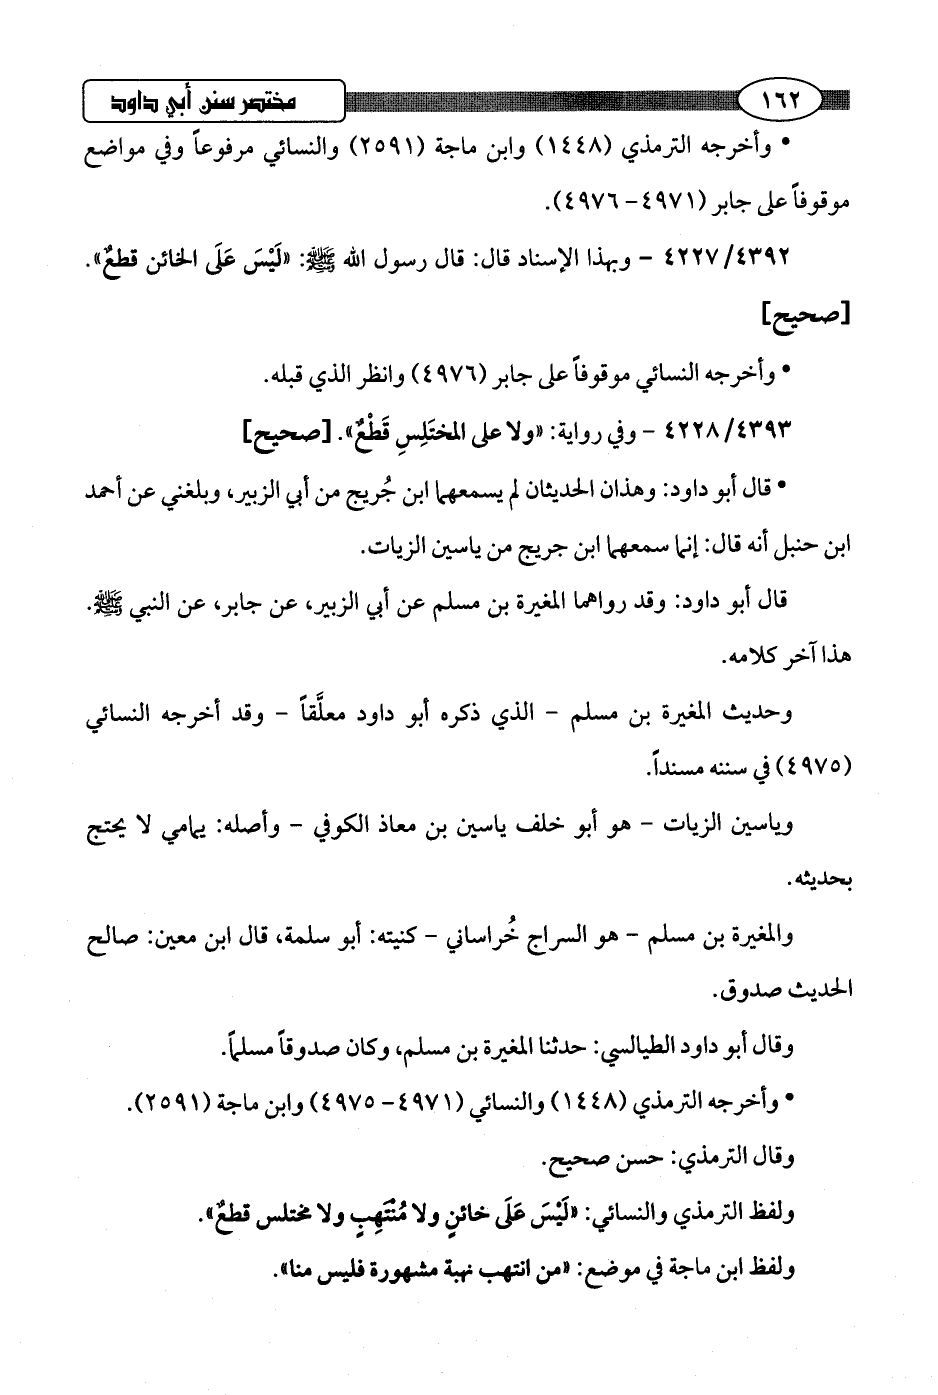 مختصر سنن أبي داود
١٦٢
• وأخرجه الترمذي (١٤٤٨) وابن ماجة (٢٥٩١) والنسائي مرفوعاً وفي مواضع
موقوفاً على جابر (٤٩٧١- ٤٩٧٦).
٤٢٢٧/٤٣٩٢ - وبهذا الإسناد قال: قال رسول الله ﷺ: «لَيْسَ عَلَى الخائن قطعٌ».
[صحيح]
• وأخرجه النسائي موقوفاً على جابر (٤٩٧٦) وانظر الذي قبله.
٤٢٢٨/٤٣٩٣ - وفي رواية: «ولا على المختَلِسِ قَطْعٌ». [صحيح]
• قال أبو داود: وهذان الحديثان لم يسمعهما ابن جُريج من أبي الزبير، وبلغني عن أحمد
ابن حنبل أنه قال: إنما سمعهما ابن جريج من ياسين الزيات.
قال أبو داود: وقد رواهما المغيرة بن مسلم عن أبي الزبير، عن جابر، عن النبي ﷺ.
هذا آخر كلامه.
وحديث المغيرة بن مسلم - الذي ذكره أبو داود معلَّقاً - وقد أخرجه النسائي
(٤٩٧٥) في سننه مسنداً.
وياسين الزيات - هو أبو خلف ياسين بن معاذ الكوفي - وأصله: يمامي لا يحتج
بحديثه.
والمغيرة بن مسلم - هو السراج خُراساني - كنيته: أبو سلمة، قال ابن معين: صالح
الحديث صدوق.
وقال أبو داود الطيالسي: حدثنا المغيرة بن مسلم، وكان صدوقاً مسلماً.
• وأخرجه الترمذي (١٤٤٨) والنسائي (٤٩٧١- ٤٩٧٥) وابن ماجة (٢٥٩١).
وقال الترمذي: حسن صحيح.
ولفظ الترمذي والنسائي: «لَيْسَ عَلَى خائنٍ ولا مُنْتَهِبٍ ولا مختلس قطعٌ».
ولفظ ابن ماجة في موضع: «من انتهب نهبة مشهورة فليس منا».